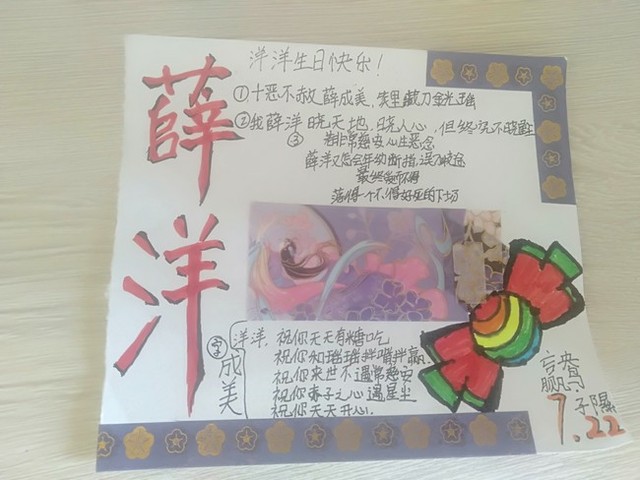 薛洋
洋洋生日快乐！
①十恶不赦薛成美，笑里藏刀金光瑶
②我薛洋晓天地，晓人心，但终究不晓尘
③若非常慈安心生恶念
薛洋又怎会年幼断指误入歧途
最终爱而不得
落得个不得好死的下场
字成美
洋洋，祝你天天有糖吃
祝你和瑶瑶拌嘴拌赢
祝你来世不遇常慈安
祝你赤子之心遇星尘
祝你天天开心.
子隰
7.22